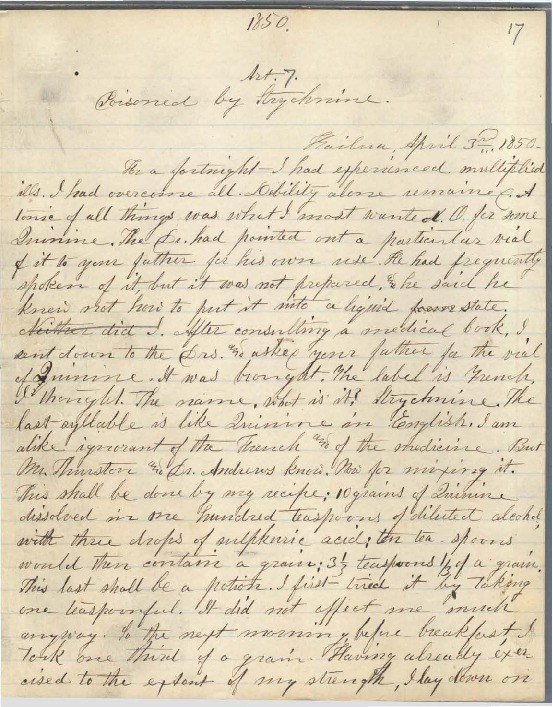 1850.
17
Art. 7.
Poisoned by Strychnine.
Kailua, April 3rd, 1850-
For a fortnight I had experienced multiplied
ills. I had overcome all. Debility alone remained. A
tonic of all things was what I most wanted. O, for some
Quinine. The Dr. had pointed out a particular vial
of it to your father for his own use. He had frequently
spoken of it but it was not prepared, & he said he
knew not how to put it into a liquid form state.
Neither did I. After consulting a medical book, I
sent down to the Drs. and asked your father for the vial
of Quinine. It was brought. The label is French,
I thought. The name, what is it? Strychnine. The
last syllable is like Quinine in English. I am
alike ignorant of the French and of the medicine. But
Mr. Thurston and Dr. Andrews know. Now for mixing it.
This shall be done by my recipe; 10 grains of Quinine
dissolved in one hundred teaspoons of diluted alcohol,
with three drops of sulphuric acid; ten tea-spoons
would then contain a grain; 3½ teaspoons ⅓ of a grain.
This last shall be a potion. I first tried it by taking
one teaspoonful. It did not affect me much
anyway. So the next morning before breakfast I
took one third of a grain. Having already exer-
cised to the extent of my strength, I lay down on